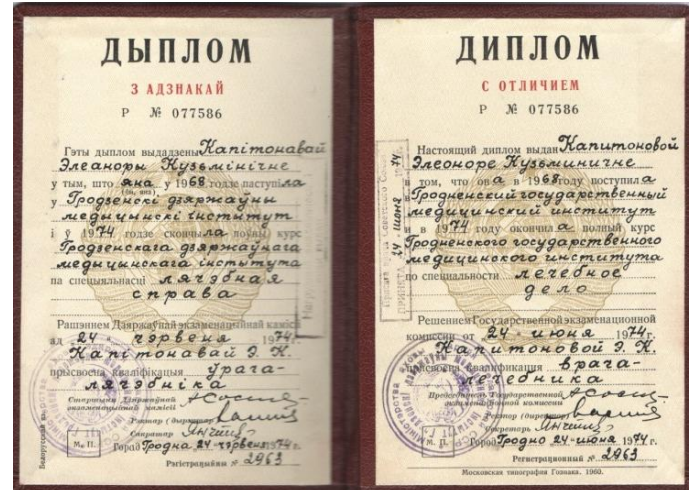 ДЫПЛОМ
З АДЗНАКАЙ
Р № 077586
Гэты дыплом выдадзены Капітонавай
Элеаноры Кузьмінічне
у тым, што яна у 1968 годзе паступіла
(ён, яна)
у Гродзенскі дзяржаўны
медыцынскі інстытут
і ў 1974 годзе скончыла поўны курс
Гродзенскага дзяржаўнага
медыцынскага інстытута
па спецыяльнасці лячэбная
справа
Рашэннем Дзяржаўнай экзаменацыйнай камісіі
ад 24 чэрвеня 1974 г.
Капітонавай Э. К.
прысвоена кваліфікацыя ўрача-
лячэбніка
Старшыня Дзяржаўнай
экзаменацыйнай камісіі
Рэктар
Сакратар
М. П.
Горад Гродна 24 чэрвеня 1974 г.
Рэгістрацыйны № 2963
ДИПЛОМ
С ОТЛИЧИЕМ
Р № 077586
Настоящий диплом выдан Капитоновой
Элеоноре Кузьминичне
в том, что она в 1968 году поступила
в Гродненский государственный
медицинский институт
и в 1974 году окончила полный курс
Гродненского государственного
медицинского института
по специальности лечебное
дело
Решением Государственной экзаменационной
комиссии от 24 июня 1974 г.
Капитоновой Э. К.
присвоена квалификация врача-
лечебника
Председатель Государственной
экзаменационной комиссии
Ректор (директор)
Секретарь
М. П.
Город Гродно 24 июня 1974 г.
Регистрационный № 2963
Московская типография Гознака. 1960.
24 июня 74